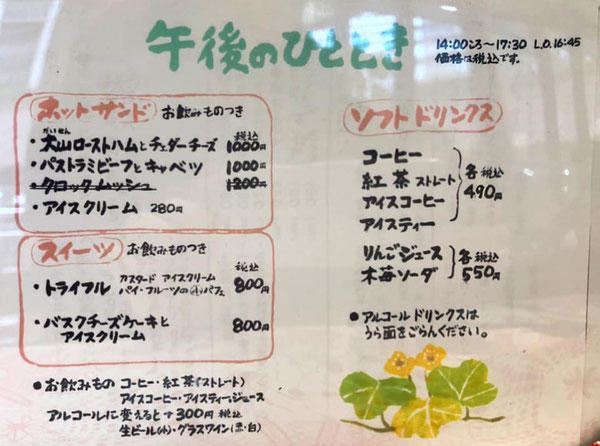 午後のひととき
14:00ころ〜17:30 L.O.16:45
価格は税込です。
ホットサンド お飲みものつき
だいせん 税込
・大山ローストハムとチェダーチーズ 1000円
・パストラミビーフとキャベツ 1000円
・クロックムッシュ 1200円
・アイスクリーム 280円
スイーツ お飲みものつき
税込
・トライフル カスタード アイスクリーム 800円
パイ・フルーツの㊙パフェ
・バスクチーズケーキと 800円
アイスクリーム
●お飲みもの コーヒー・紅茶(ストレート)
アイスコーヒー・アイスティー、ジュース
アルコールに変えると+300円 税込
生ビール(小)・グラスワイン(赤・白)
ソフトドリンクス
コーヒー
紅茶 ストレート
アイスコーヒー
アイスティー
各 税込
490円
りんごジュース
木苺ソーダ
各 税込
550円
●アルコールドリンクスは
うら面をごらんください。